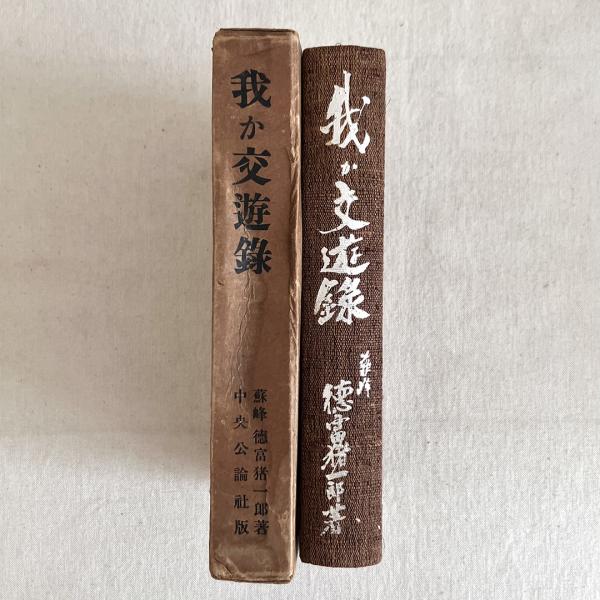 我か交遊錄
蘇峰 德富猪一郎著
中央公論社版
我か交遊錄
蘇峰
德富猪一郎著